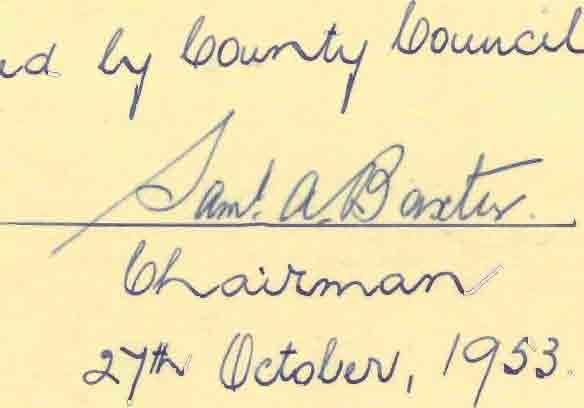 by County Council
Saml. A. Baxter.
Chairman
27th October, 1953.